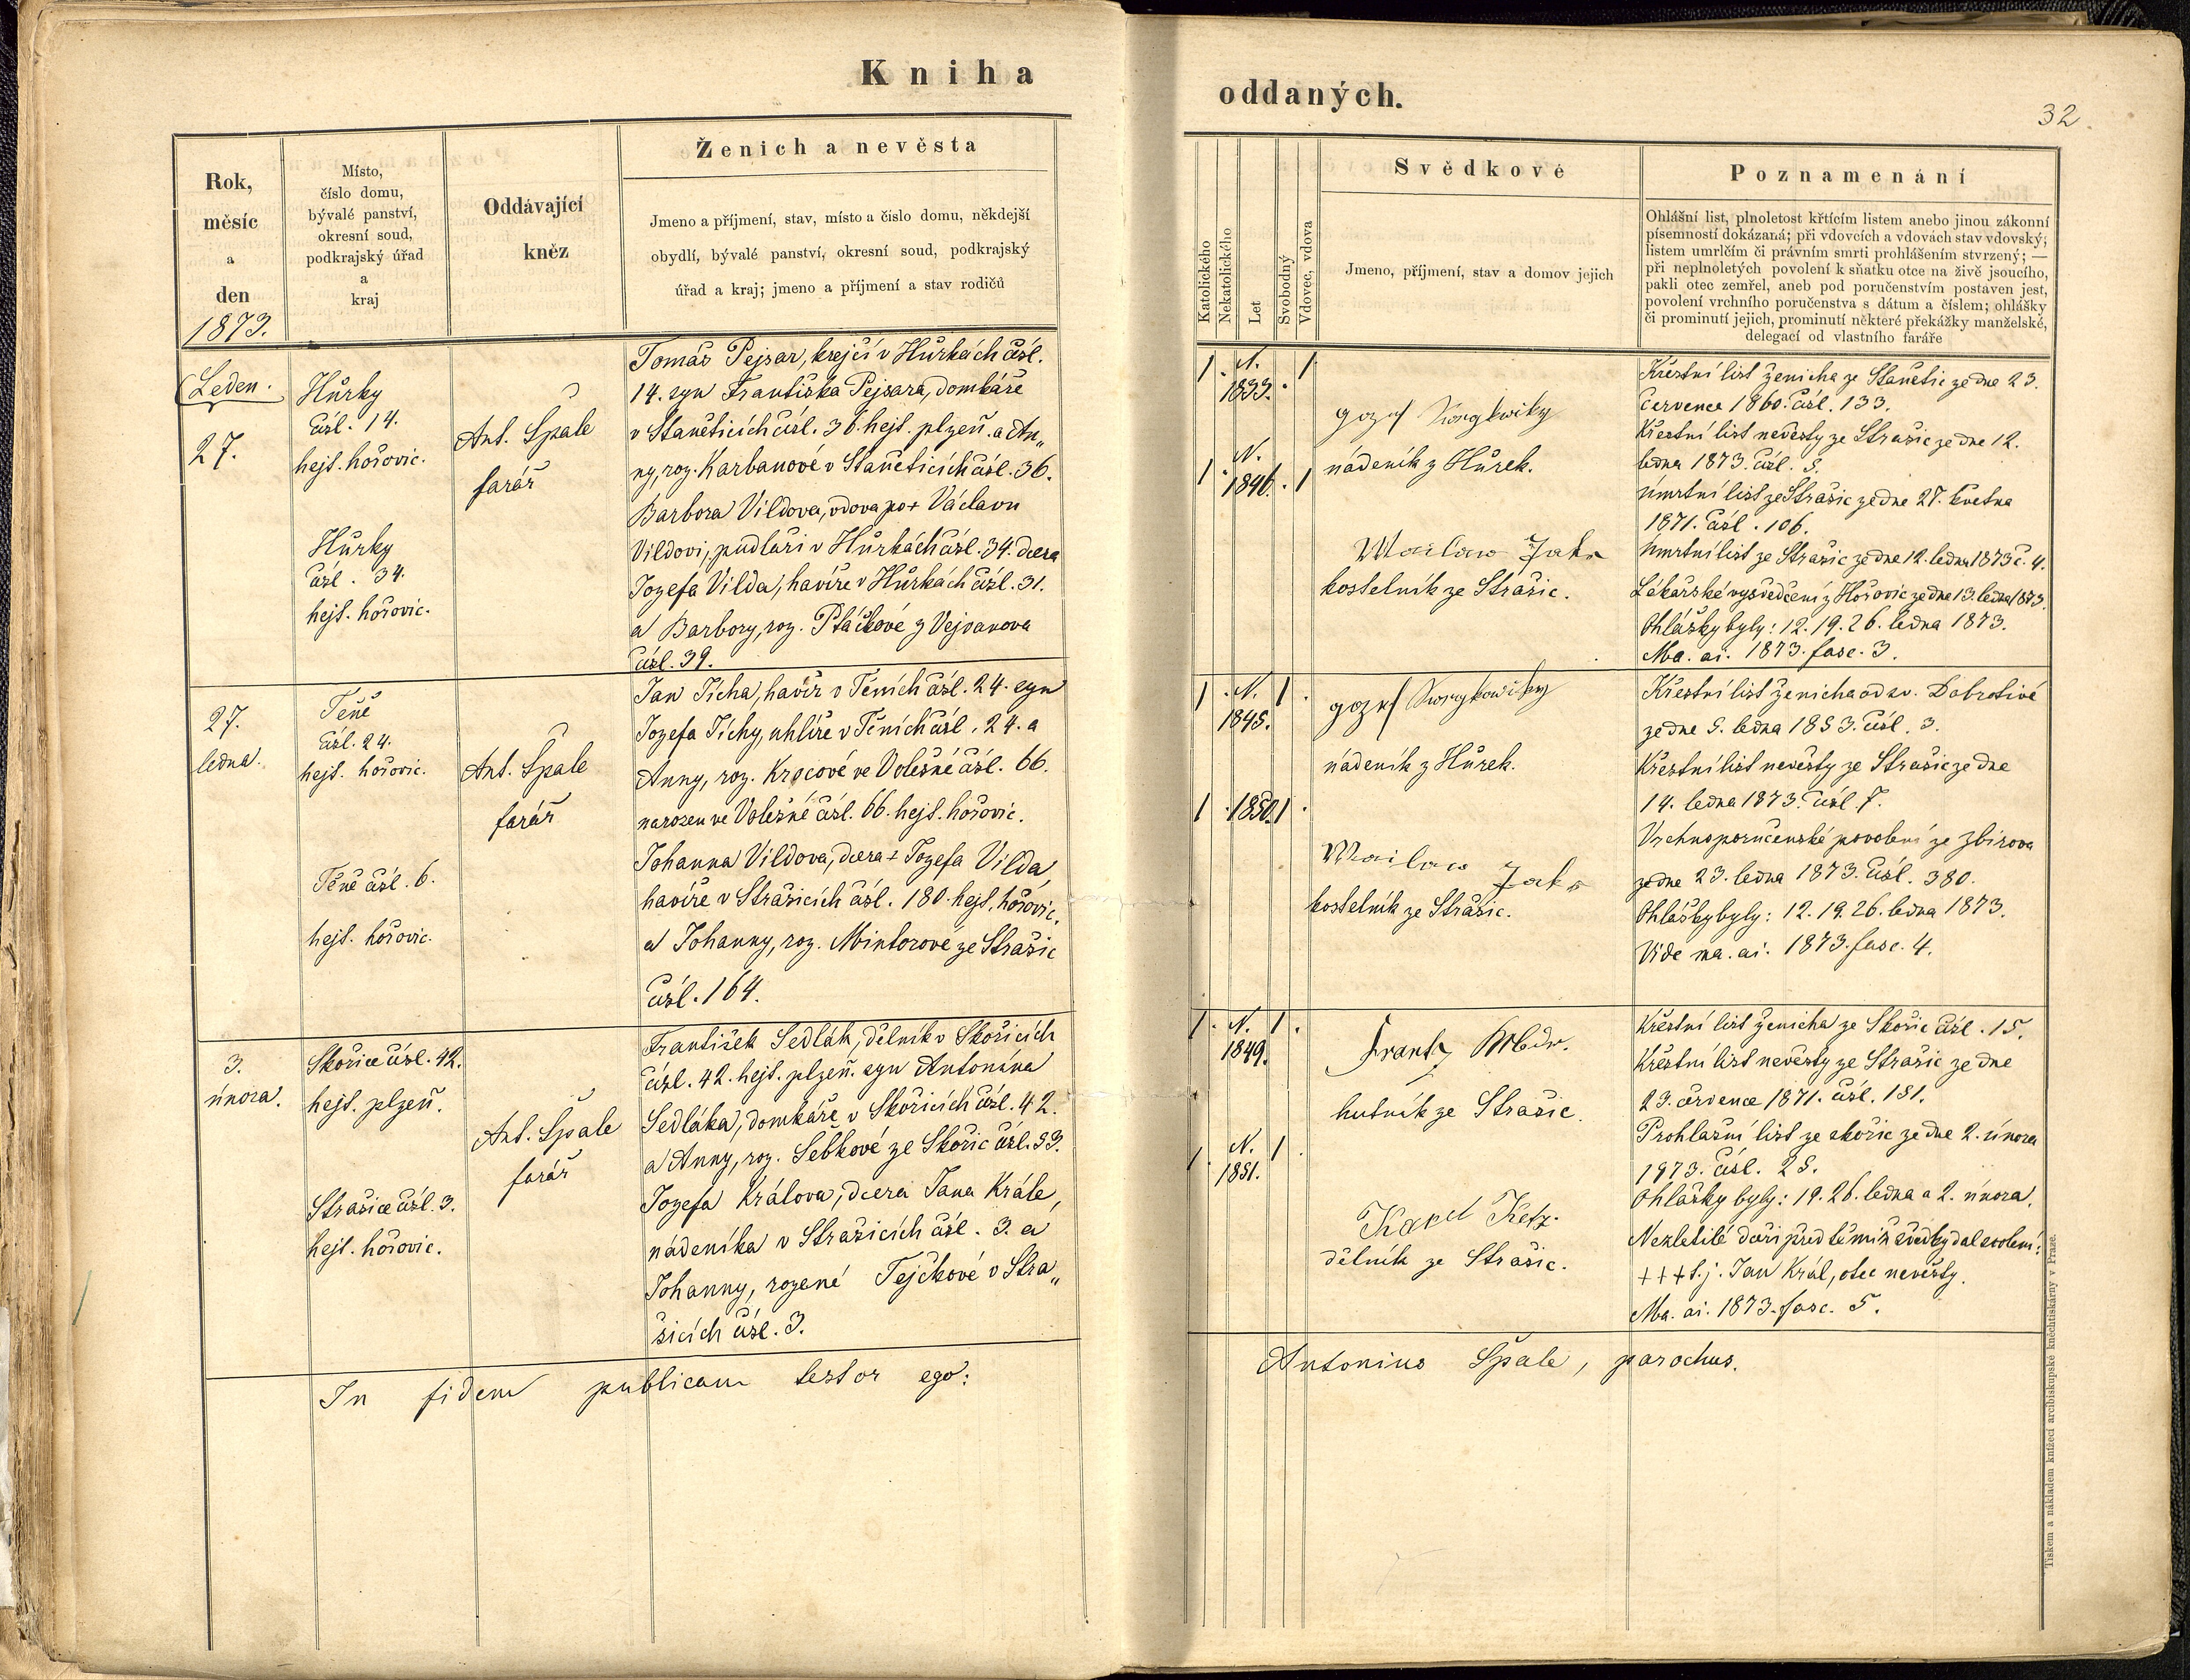 Kniha
oddaných.
32
Rok,
měsíc
a
den
1873.
Místo,
číslo domu,
bývalé panství,
okresní soud,
podkrajský úřad
a
kraj
Oddávající
kněz
Ženich a nevěsta
Jmeno a příjmení, stav, místo a číslo domu, někdejší
obydlí, bývalé panství, okresní soud, podkrajský
úřad a kraj; jmeno a příjmení a stav rodičů
Katolického
Nekatolického
Let
Svobodný
Vdovec, vdova
Svědkové
Jmeno, příjmení, stav a domov jejich
Poznamenání
Ohlášní list, plnoletost křtícím listem anebo jinou zákonní
písemností dokázaná; při vdovcích a vdovách stav vdovský,
listem umrlčím či právním smrti prohlášením stvrzený; —
při neplnoletých povolení k sňatku otce na živě jsoucího,
pakli otec zemřel, aneb pod poručenstvím postaven jest,
povolení vrchního poručenstva s dátum a číslem; ohlášky
či prominutí jejich, prominutí některé překážky manželské,
delegací od vlastního faráře
Leden.
27.
Hůrky
čísl. 14.
hejt. hořovic.
Hůrky
čísl. 34.
hejt. hořovic.
Ant. Špale
farář
Tomáš Pejsar, krejčí v Hůrkách čísl.
14. syn Františka Pejsara, domkáře
v Staněticích čísl. 36. hejt. plzeň. a An„
ny, roz. Karbanové v Staněticích čísl. 36.
Barbora Vildova, vdova po + Václavu
Vildovi, pudláři v Hůrkách čísl. 34. dcera
Jozefa Vilda, havíře v Hůrkách čísl. 31.
a Barbory, roz. Ptáčkové z Vejvanova
čísl. 39.
1. N. 1
1833.
N.
1. 1846. 1
nádeník z Hůrek.
Jakš
kostelník ze Strašic.
Křestní list ženicha ze Stanětic ze dne 23.
července 1860. čísl. 133.
Křestní list nevěsty ze Strašic ze dne 12.
ledna 1873. čísl. 5.
Úmrtní list ze Strašic ze dne 27. května
1871. čísl. 106.
Úmrtní list ze Strašic ze dne 12. ledna 1873 č. 4.
Lékařské vysvědčení z Hořovic ze dne 13. ledna 1873.
Ohlášky byly: 12. 19. 26. ledna 1873.
Ma. ai. 1873. fasc. 3.
27.
ledna.
Těně
čísl. 24.
hejt. hořovic.
Těně čísl. 6.
hejt. hořovic.
Ant. Špale
farář
Jan Tícha, havíř v Těních čísl. 24. syn
Jozefa Tíchy, uhlíře v Těních čísl. 24. a
Anny, roz. Krocové ve Volešné čísl. 66.
narozen ve Volešné čísl. 66. hejt. hořovic.
Johanna Vildova, dcera + Jozefa Vilda,
havíře v Strašicích čísl. 180. hejt. hořovic.
a Johanny, roz. Mintorové ze Strašic
čísl. 164.
1. N. 1.
1845.
1. 1850. 1.
nádeník z Hůrek.
Jakš
kostelník ze Strašic.
Křestní list ženicha od sv. Dobrotivé
ze dne 5. ledna 1853. čísl. 3.
Křestní list nevěsty ze Strašic ze dne
14. ledna 1873. čísl. 7.
Vrchnoporučenské povolení ze Zbirova
ze dne 23. ledna 1873. čísl. 380.
Ohlášky byly: 12. 19. 26. ledna 1873.
Vide ma. ai. 1873. fasc. 4.
3.
února.
Skořice čísl. 42.
hejt. plzeň.
Strašice čísl. 3.
hejt. hořovic.
Ant. Špale
farář
František Sedlák, dělník v Skořicích
čísl. 42. hejt. plzeň. syn Antonína
Sedláka, domkáře v Skořicích čísl. 42.
a Anny, roz. Šebkové ze Skořic čísl. 53.
Jozefa Králova, dcera Jana Krále,
nádeníka v Strašicích čísl. 3. a
Johanny, rozené Tejčkové v Stra„
šicích čísl. 3.
1. N. 1.
1849.
N.
1. 1
1851.
Frantz
hutník ze Strašic.
Karel
dělník ze Strašic.
Křestní list ženicha ze Skořic čísl. 15.
Křestní list nevěsty ze Strašic ze dne
23. července 1871. čísl. 151.
Prohlašní list ze skořic ze dne 2. února
1873. čísl. 25.
Ohlášky byly: 19. 26. ledna a 2. února.
Nezletilé dceři před těmiž svědky dal svolení:
+++ t. j. Jan Král, otec nevěsty.
Ma. ai. 1873. fasc. 5.
In fidem publicam testor ego:
Antonius Špale, parochus.
Tiskem a nákladem knížecí arcibiskupské knihtiskárny v Praze.